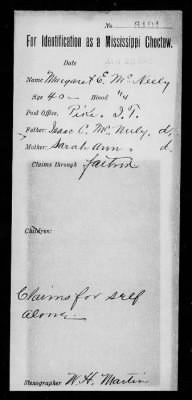 No.
For Identification as a Mississippi Choctaw.
Date
Name Margaret E. McNeely
Age 40 Blood 1/4
Post Office, Pike, I.T.
Father: Isaac C. McNeely, d.
Mother: Sarah Ann " d.
Claims through father
Children:
Claims for self
alone.
Stenographer W.H. Martin